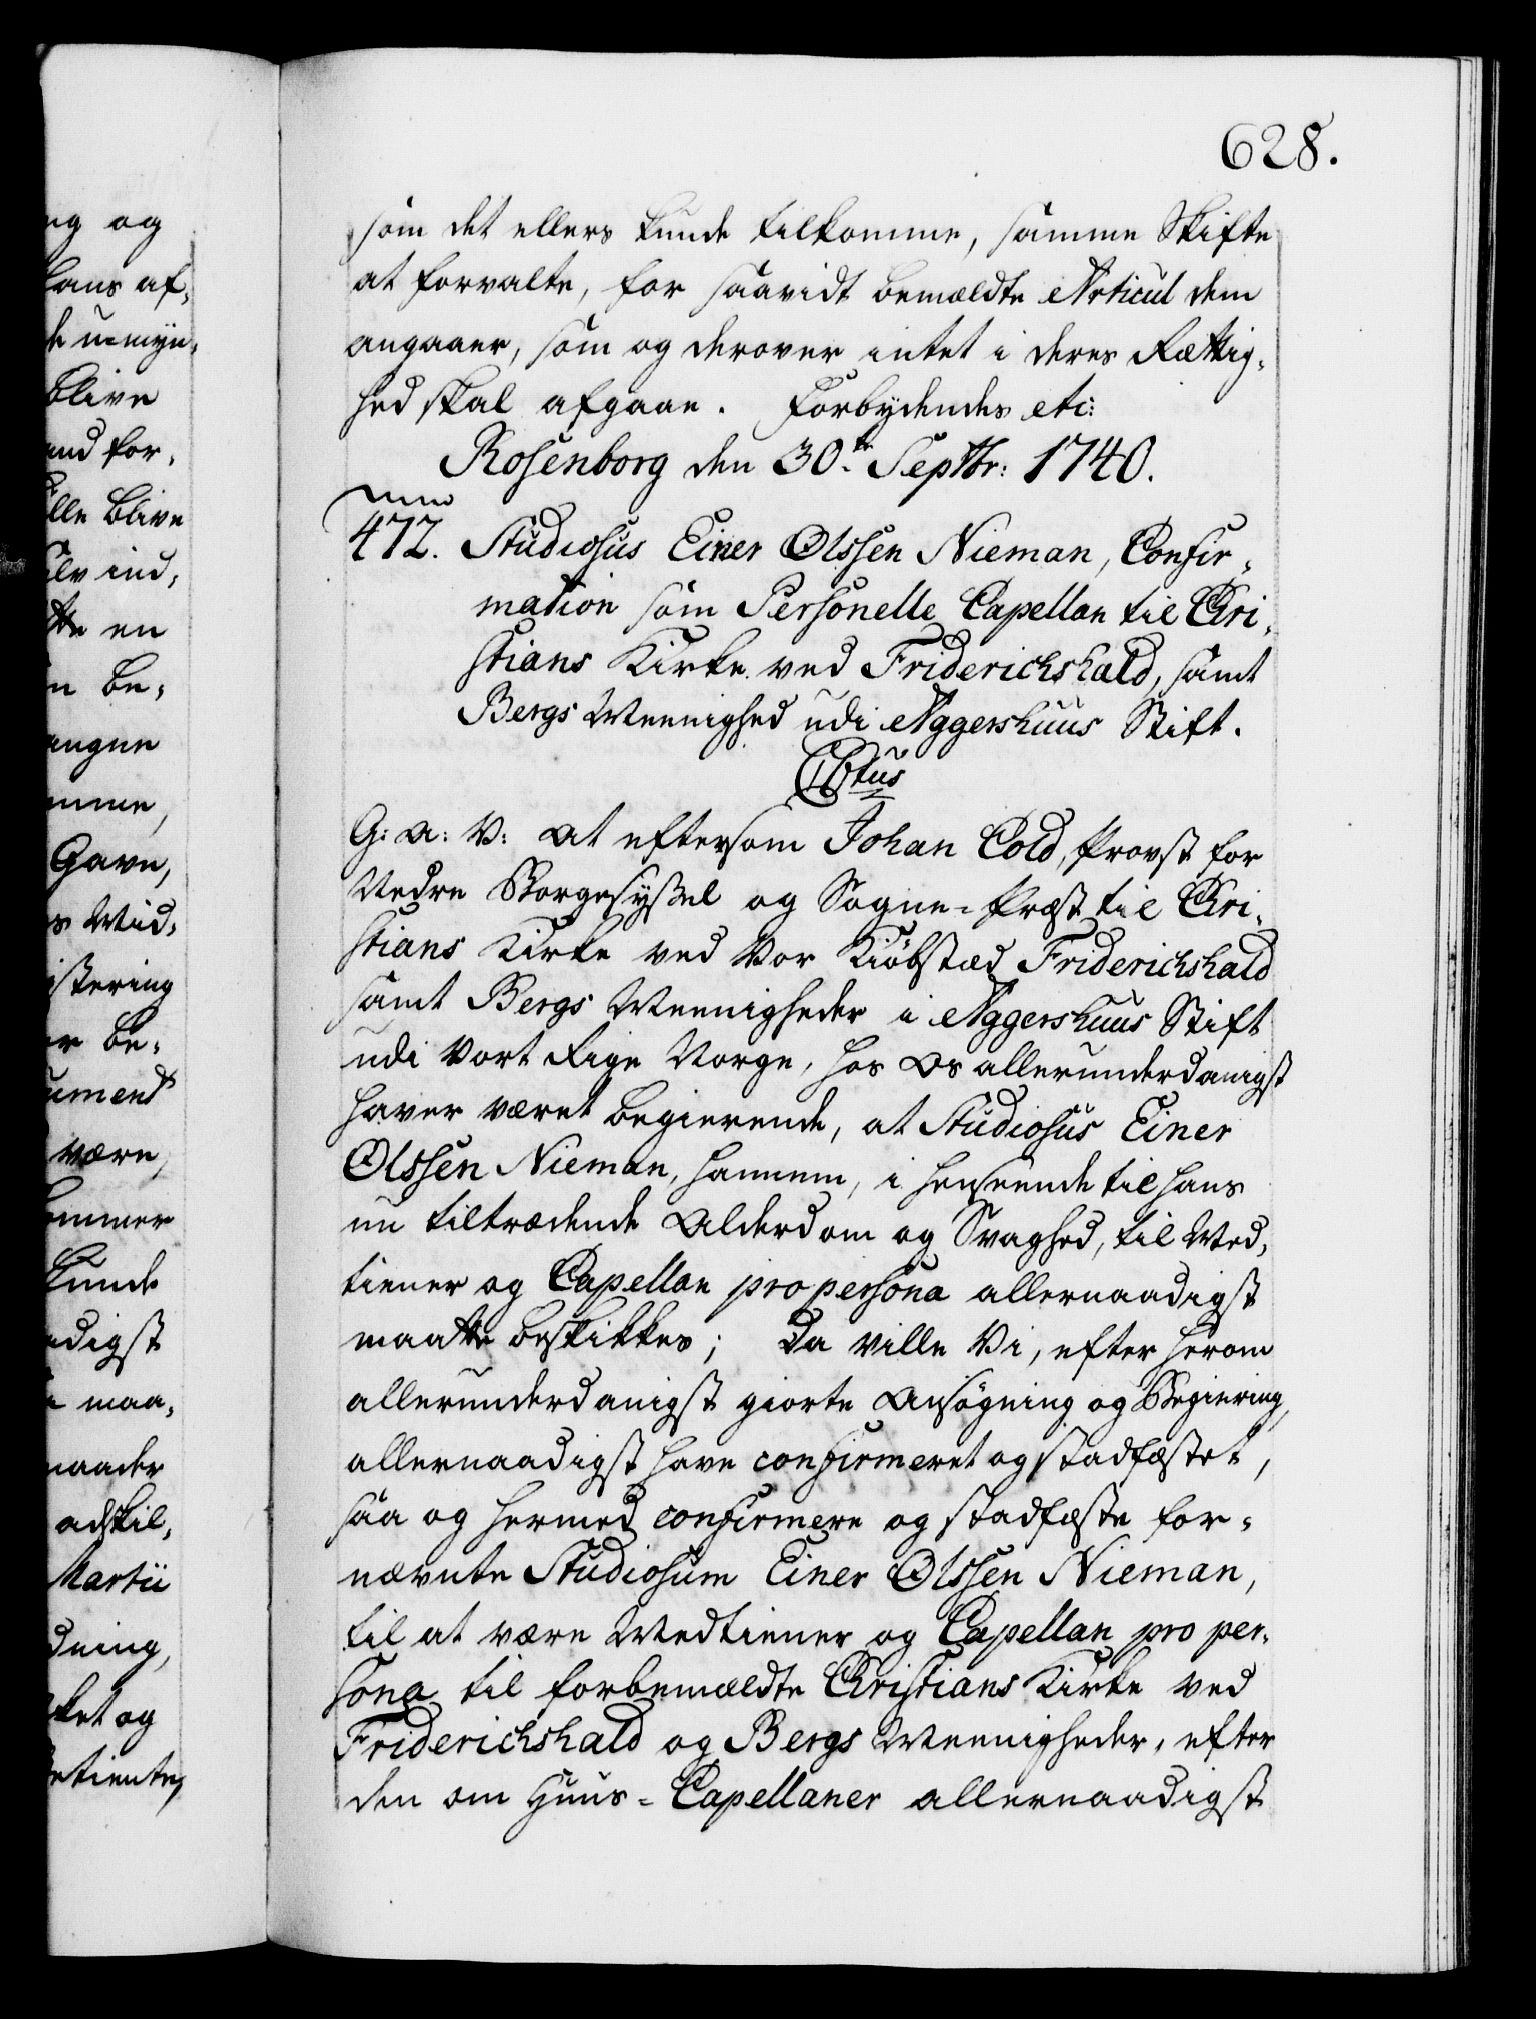 628.
som det ellers kunde tilkomme, samme Skifte
at forvalte, for saavidt bemældte Articul dem
angaaer, som og derover intet i deres Rettig-
hed skal afgaae. Forbydendes etc:
Rosenborg den 30.te Septbr: 1740.
472. Studiosus Einer Olssen Nieman, Confir-
mation som Personelle Capellan til Chri-
stians Kirke ved Friderichshald, samt
Bergs Meenighed udi Aggershuus Stift.
C6tus
G: A: V: At eftersom Johan Cold, Provst for
Nedre Borgesyssel og Sogne-Præst til Chri-
stians Kirke ved Vor Kiøbstæd Friderichshald
samt Bergs Meenigheder i Aggershuus Stift
udi Vort Rige Norge, hos Os allerunderdanigst
haver været begierende, at Studiosus Einer
Olssen Nieman, hannem, i henseende til hans
nu tiltrædende Alderdom og Svaghed, til Med-
tiener og Capellan pro persona allernaadigst
maatte beskikkes; Da ville Vi, efter herom
allerunderdanigst giorte Ansøgning og Begiering,
allernaadigst have confirmeret og stadfæstet,
saa og hermed confirmere og stadfæste for-
nævnte Studiosum Einer Olssen Nieman,
til at være Medtiener og Capellan pro per-
sona til forbemældte Christians Kirke ved
Friderichshald og Bergs Meenigheder, efter
den om Huus-Capellaner allernaadigst
ng og
hans af-
de u-myn-
blive
and for-
ille blive
ælv ind-
tte en
n be-
angne
omme,
Gavn,
s Mid-
istering
er be-
ument
være,
kommer
kunde
adigst
maa-
maader
adskil-
Martii
dning,
ket og
etiente,